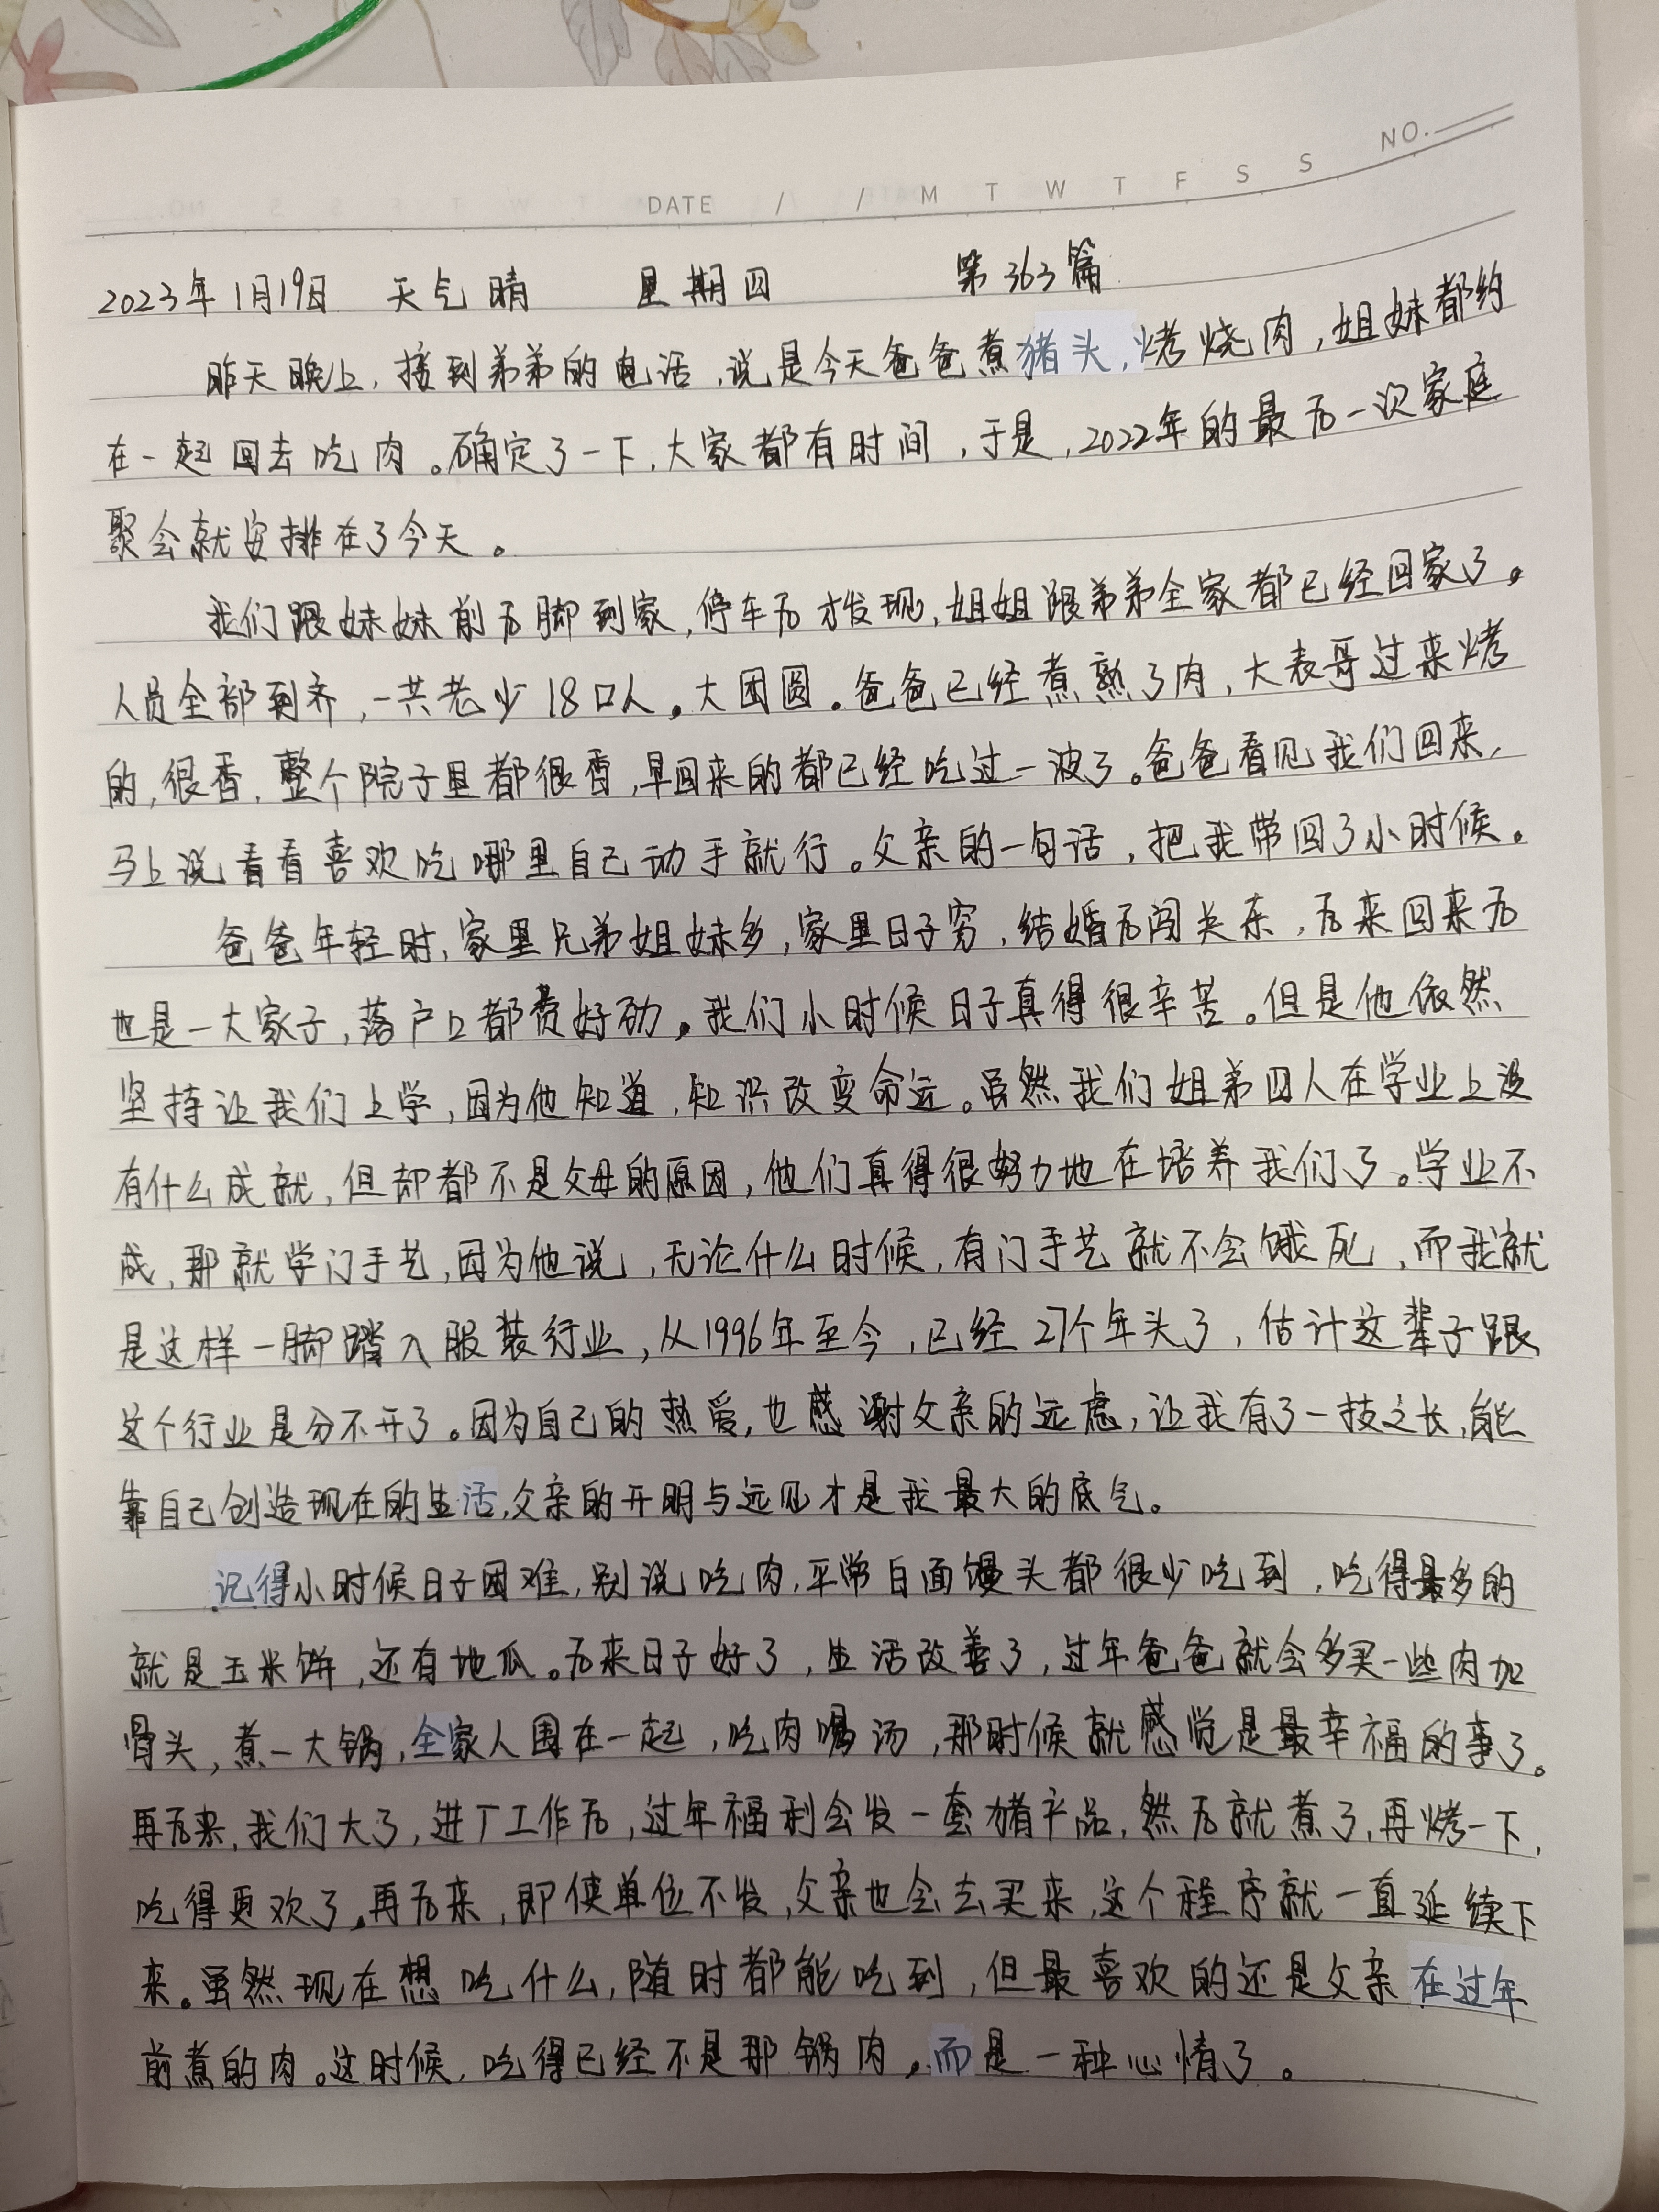 NO.
DATE / / M T W T F S S
2023年1月19日 天气晴 星期四 第363篇
昨天晚上,接到弟弟的电话,说是今天爸爸煮猪头,烤烧肉,姐妹都约
在一起回去吃肉。确定了一下,大家都有时间,于是,2022年的最后一次家庭
聚会就安排在了今天。
我们跟妹妹前后脚到家,停车后才发现,姐姐跟弟弟全家都已经回家了。
人员全部到齐,一共老少18口人。大团圆。爸爸已经煮熟了肉,大表哥过来烤
的,很香,整个院子里都很香,早回来的都已经吃过一波了。爸爸看见我们回来,
马上说看看喜欢吃哪里自己动手就行。父亲的一句话,把我带回了小时候。
爸爸年轻时,家里兄弟姐妹多,家里日子穷,结婚后闯关东,后来回来后
也是一大家子,落户口都费好劲。我们小时候日子真得很辛苦。但是他依然
坚持让我们上学,因为他知道,知识改变命运。虽然我们姐弟四人在学业上没
有什么成就,但却都不是父母的原因,他们真得很努力地在培养我们了。学业不
成,那就学门手艺,因为他说,无论什么时候,有门手艺就不会饿死,而我就
是这样一脚踏入服装行业,从1996年至今,已经27个年头了,估计这辈子跟
这个行业是分不开了。因为自己的热爱,也感谢父亲的远虑,让我有了一技之长,能
靠自己创造现在的生活,父亲的开明与远见才是我最大的底气。
记得小时候日子困难,别说吃肉,平常白面馒头都很少吃到,吃得最多的
就是玉米饼,还有地瓜。后来日子好了,生活改善了,过年爸爸就会多买一些肉加
骨头,煮一大锅,全家人围在一起,吃肉喝汤,那时候就感觉是最幸福的事了。
再后来,我们大了,进厂工作后,过年福利会发一套猪产品,然后就煮了,再烤一下,
吃得更欢了。再后来,即使单位不发,父亲也会去买来,这个程序就一直延续下
来。虽然现在想吃什么,随时都能吃到,但最喜欢的还是父亲在过年
前煮的肉。这时候,吃得已经不是那锅肉,而是一种心情了。